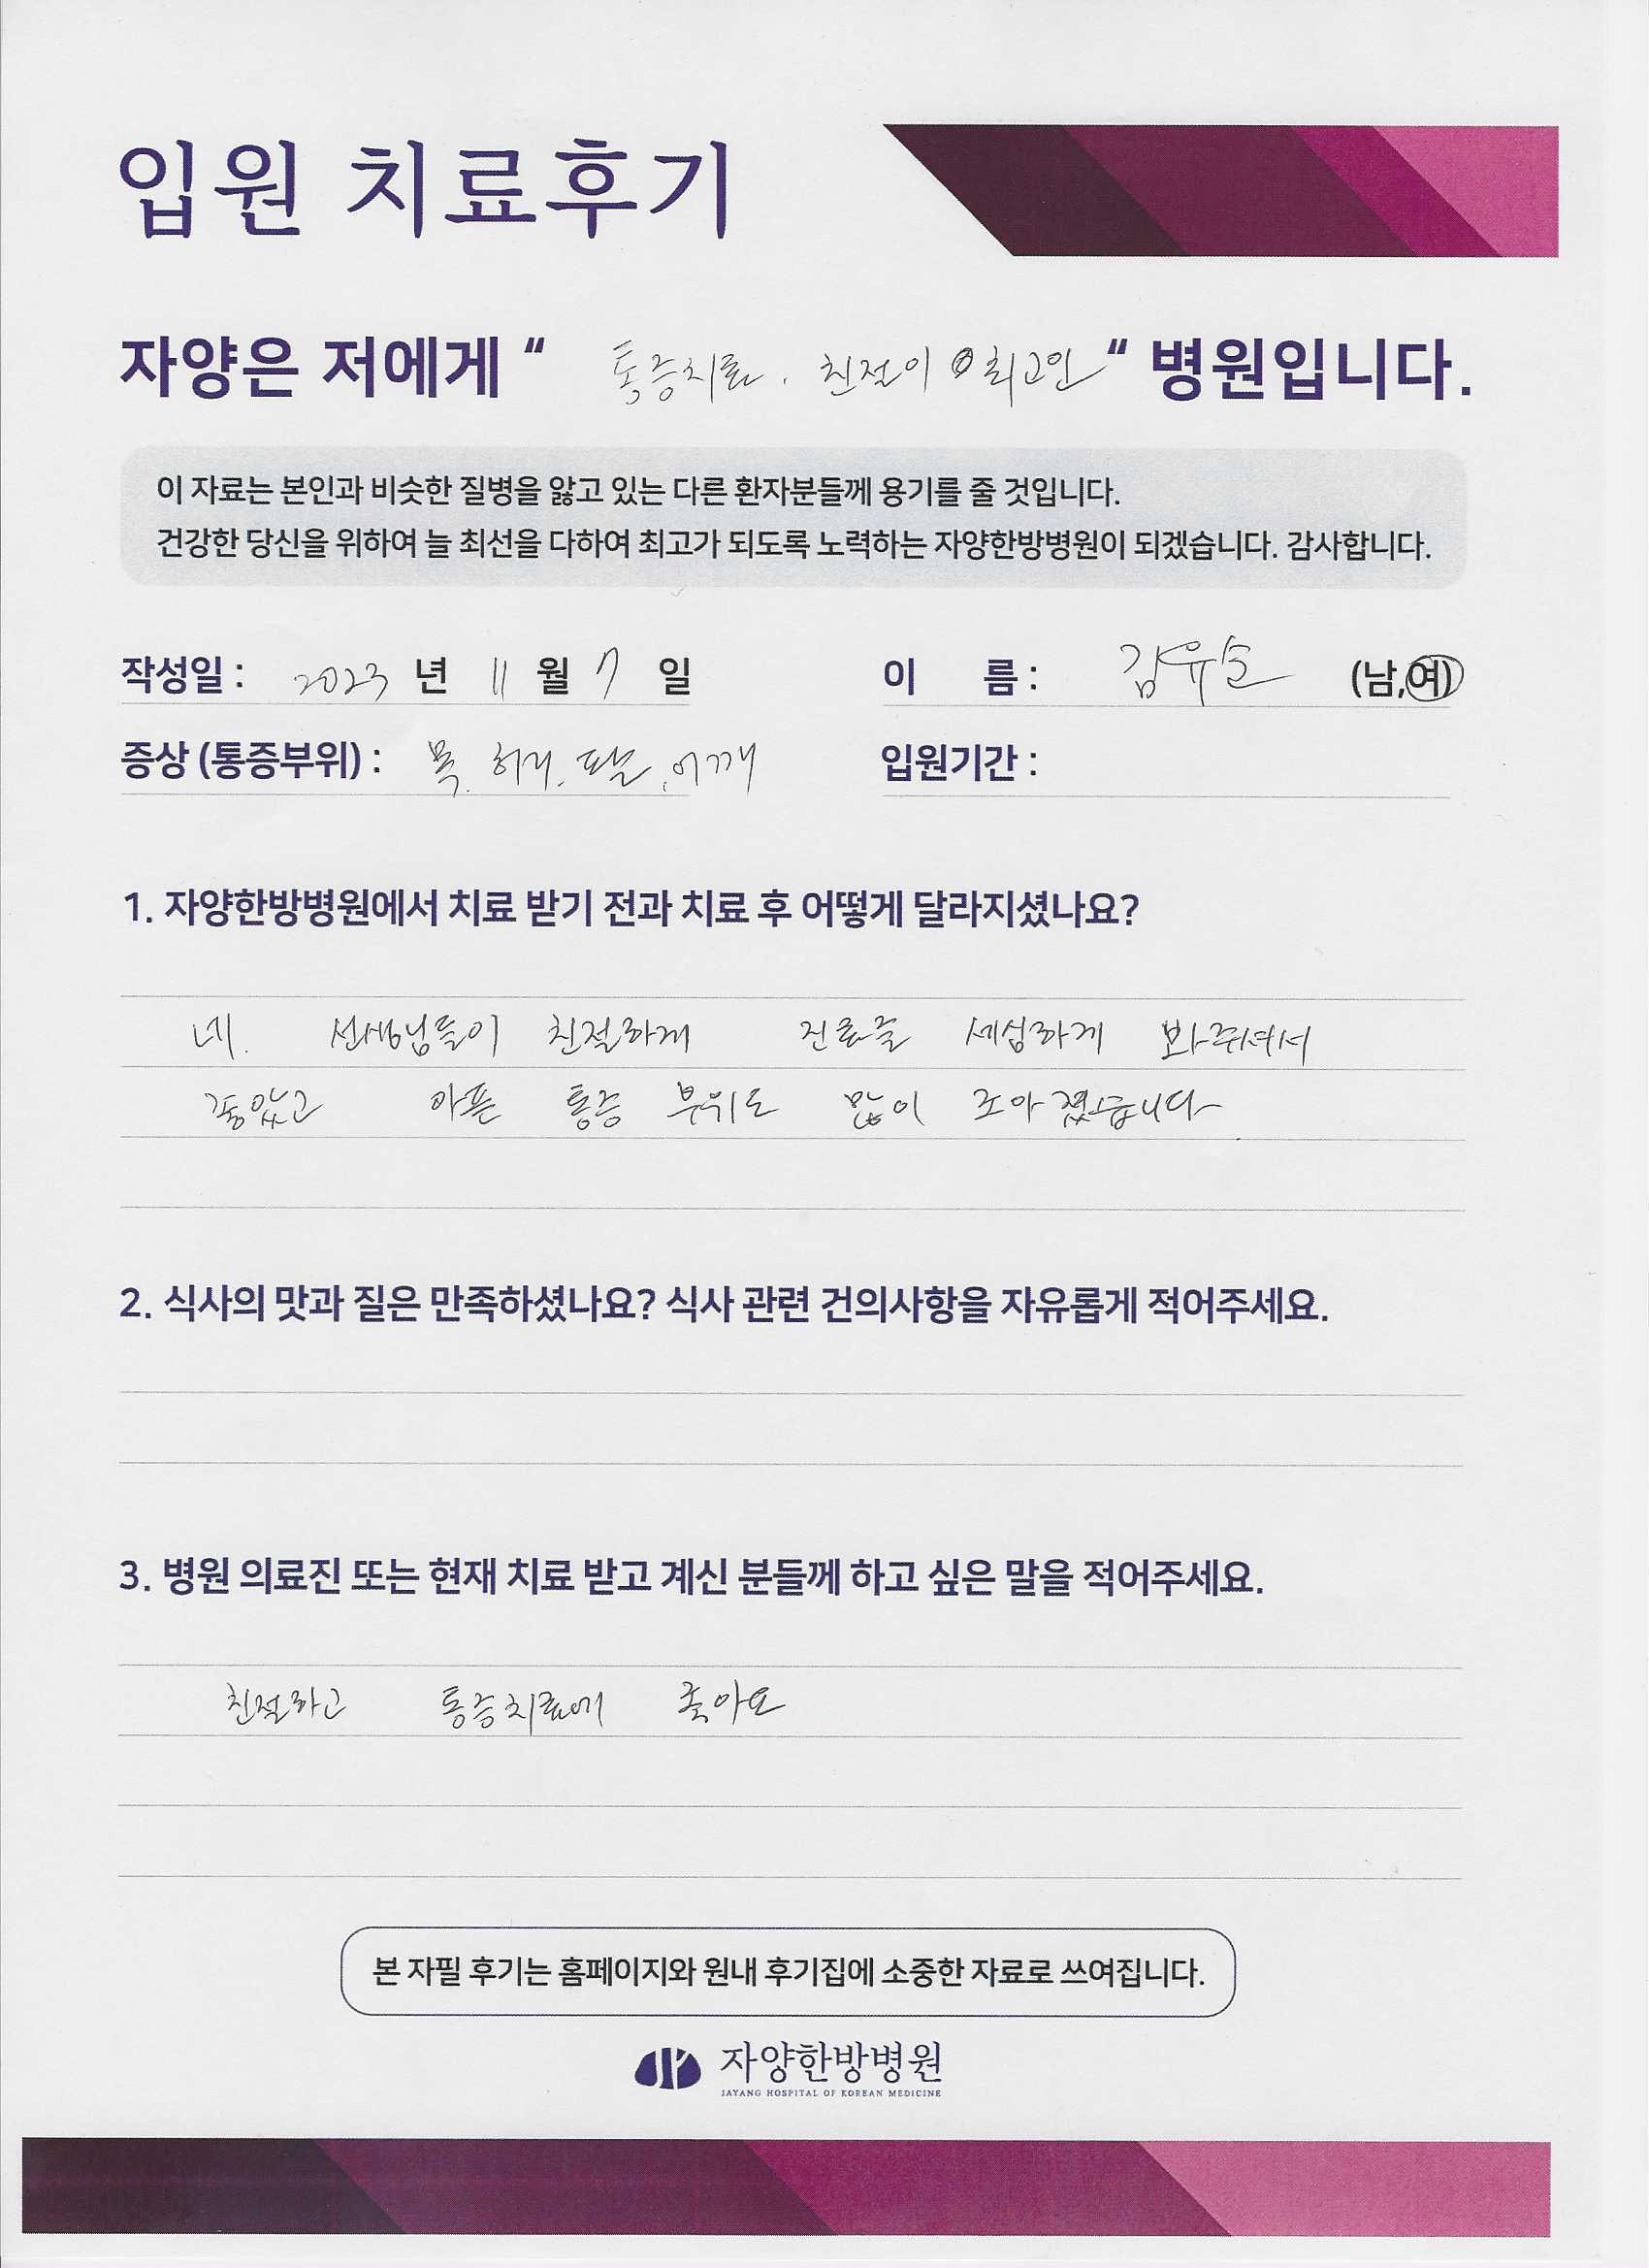 입원 치료후기
자양은 저에게 " 통증치료. 친절이 최고인 " 병원입니다.
이 자료는 본인과 비슷한 질병을 앓고 있는 다른 환자분들께 용기를 줄 것입니다.
건강한 당신을 위하여 늘 최선을 다하여 최고가 되도록 노력하는 자양한방병원이 되겠습니다. 감사합니다.
작성일 : 2023 년 11 월 7 일
이 름 : 김유순 (남,여)
증상 (통증부위) : 목. 허리. 팔. 어깨
입원기간 :
1. 자양한방병원에서 치료 받기 전과 치료 후 어떻게 달라지셨나요?
네. 선생님들이 친절하게 진료를 세심하게 봐주셔서
좋았고 아픈 통증 부위도 많이 조아졌습니다
2. 식사의 맛과 질은 만족하셨나요? 식사 관련 건의사항을 자유롭게 적어주세요.
3. 병원 의료진 또는 현재 치료 받고 계신 분들께 하고 싶은 말을 적어주세요.
친절하고 통증치료에 좋아요
본 자필 후기는 홈페이지와 원내 후기집에 소중한 자료로 쓰여집니다.
자양한방병원
JAYANG HOSPITAL OF KOREAN MEDICINE